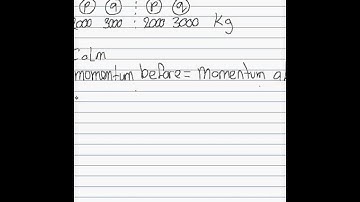 p q : p q
2000 3000 : 2000 3000 kg
CaLm
momentum before = momentum a